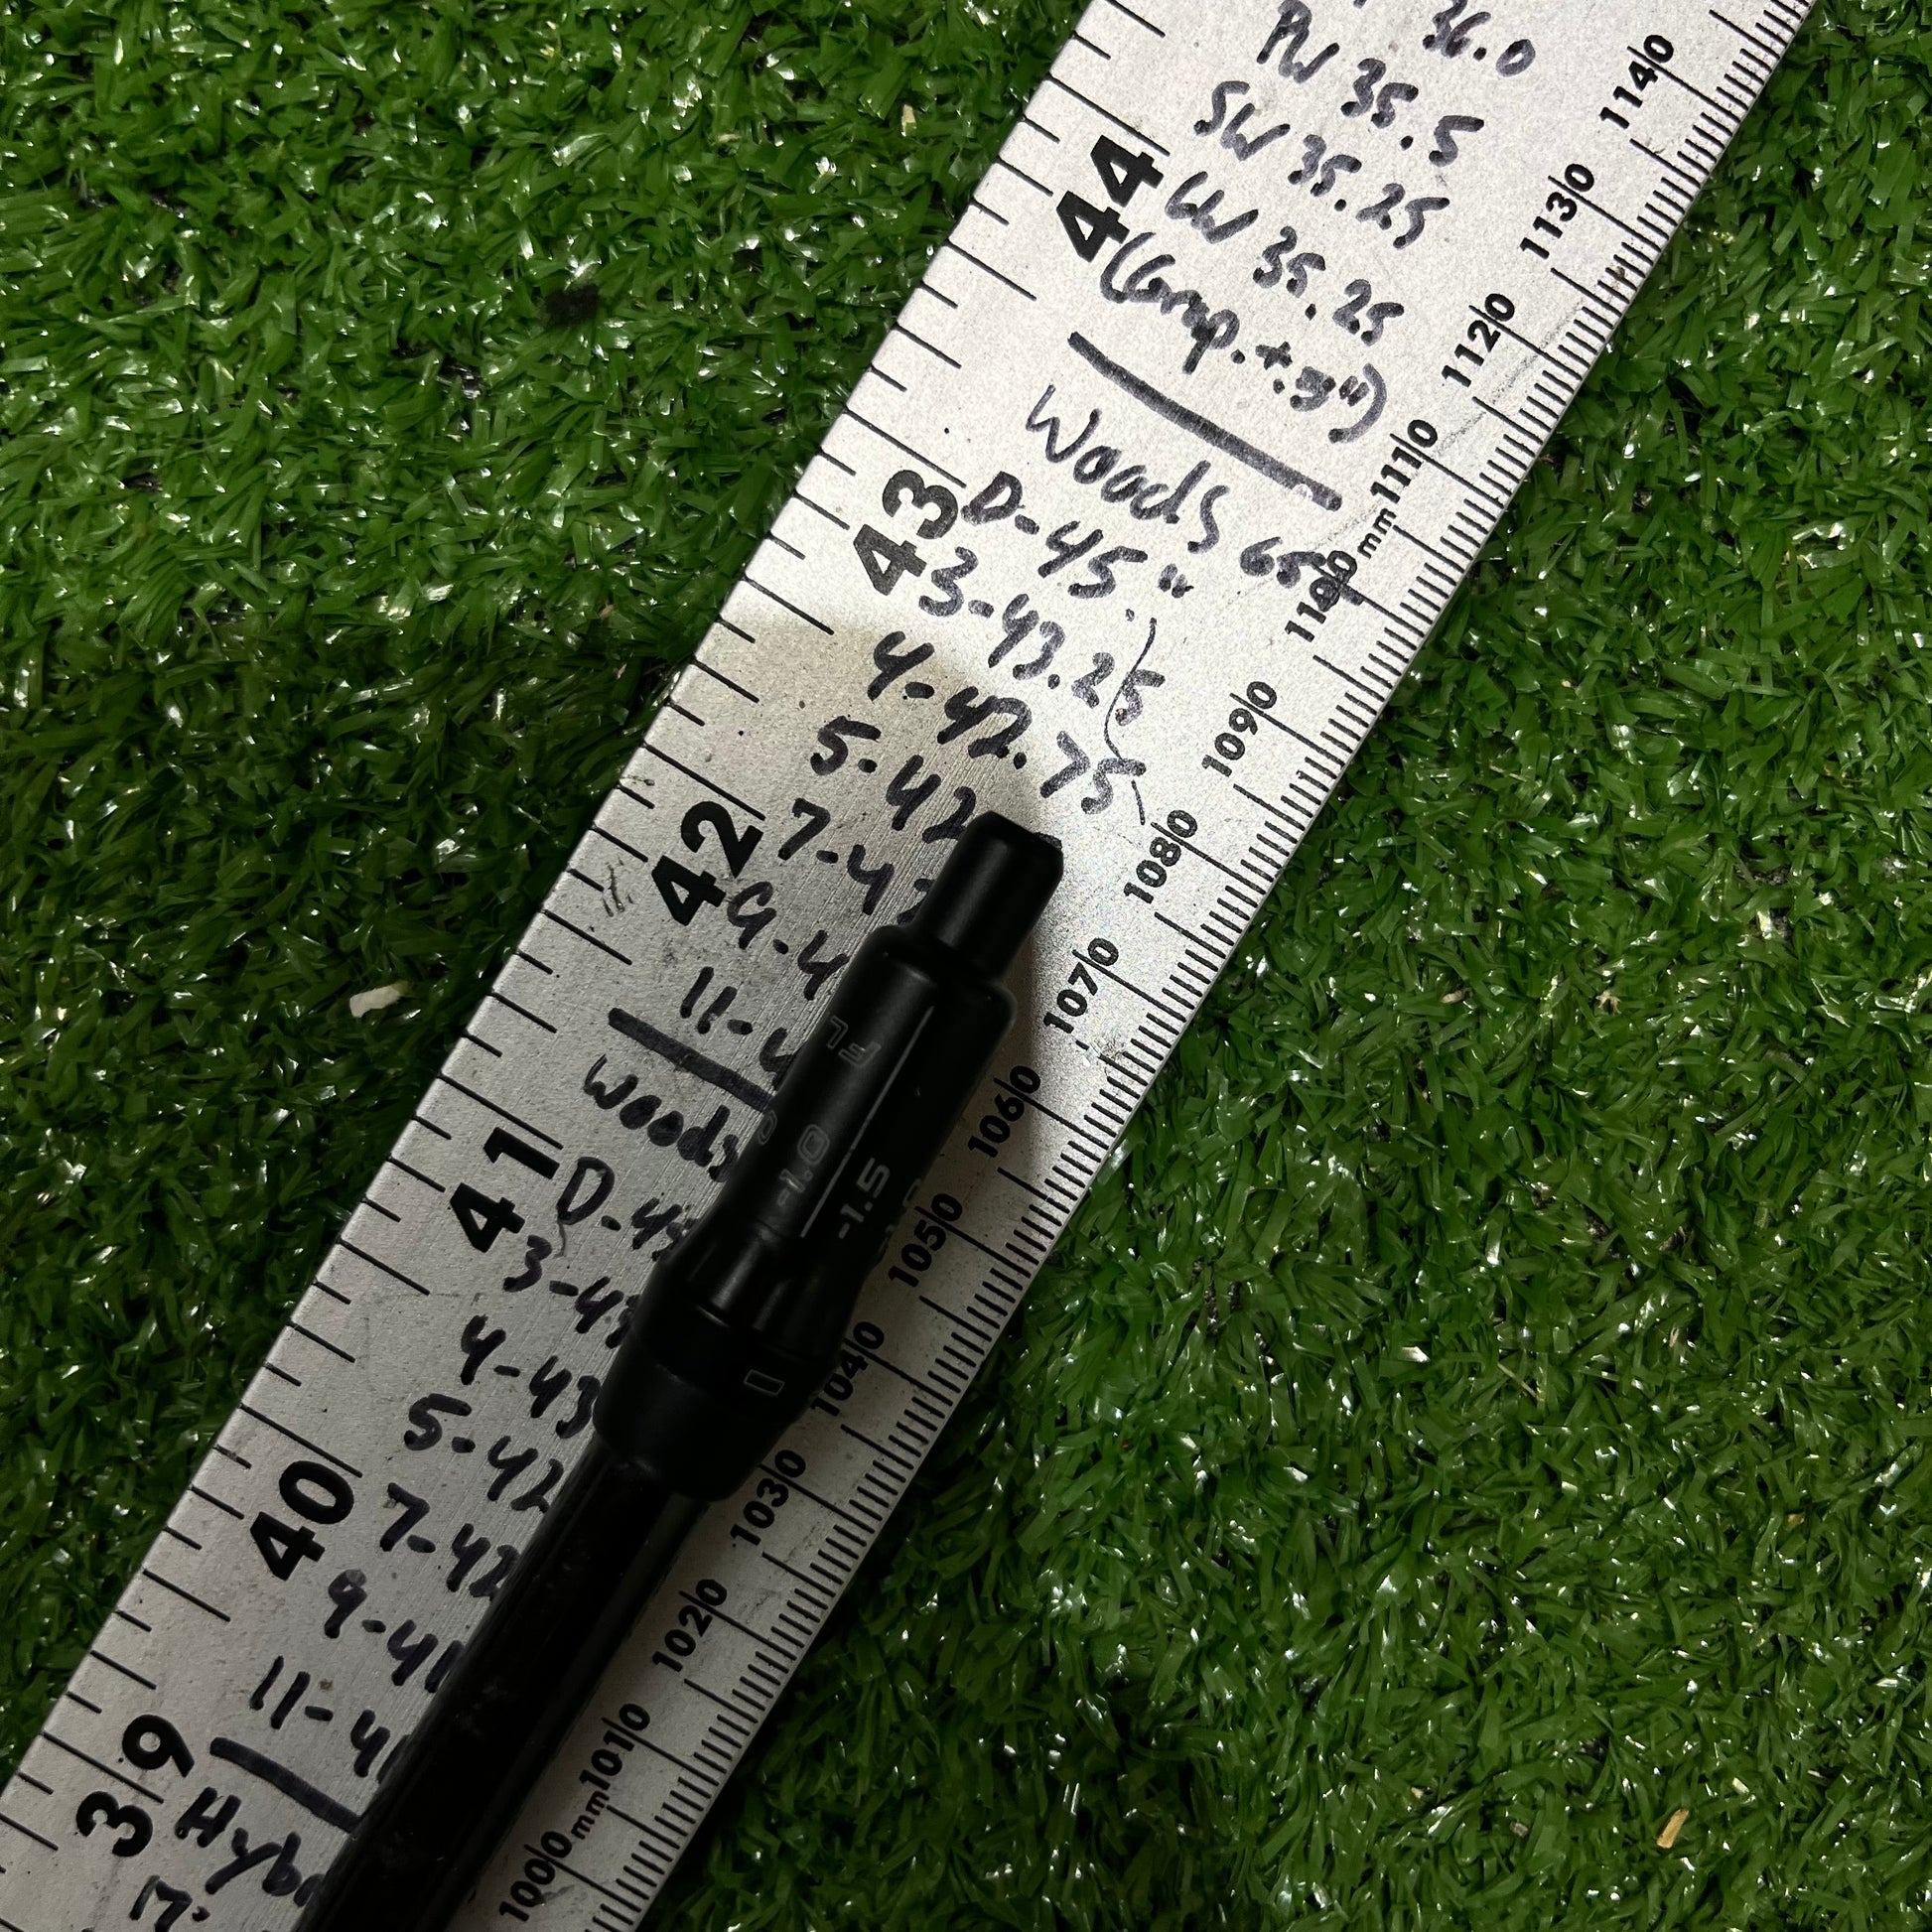 36.0
PW 35.5
SW 35.25
LW 35.25
(Grap. +.5")
Woods 65g
D-45"
3-43.25
4-42.75
5-42
7-42
9-4
11-4
Woods
D-45
3-43
4-43
5-42
7-42
9-41
11-41
Hybr
44
43
42
41
40
39
1140
1130
1120
1110
mm
1100
1090
1080
1070
1060
1050
1040
1030
1020
1010
mm
1000
-1.0
-1.5